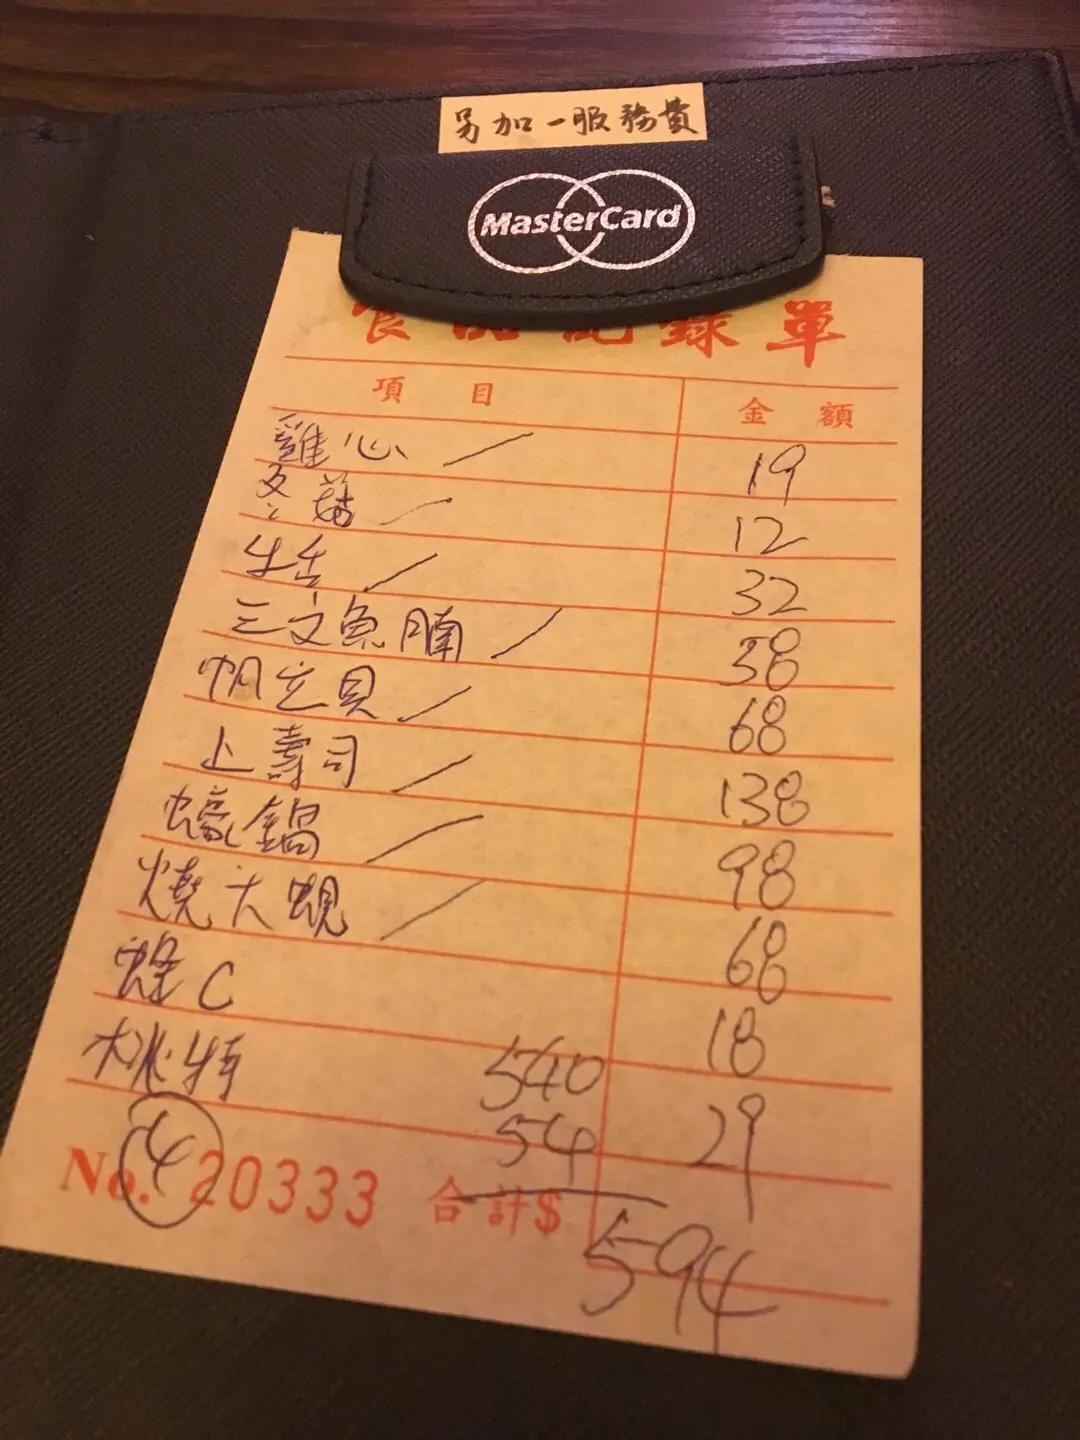 另加一服務費
MasterCard
食品記錄單
項目 金額
雞心 19
冬菇 12
牛舌 32
三文魚腩 38
帆立貝 68
上壽司 138
蠔鍋 98
燒大蜆 68
蜂C 18
桃特 540 29
54
4
No. 20333 合計$ 594